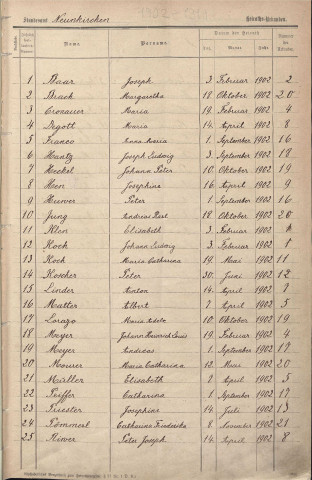 Standesamt Neunkirchen Heiraths-Urkunden.
Name Vorname Datum der Heirath
Tag Monat Jahr
1 Baar Joseph 3. Februar 1902 2
2 Brack Margaretha 18 Oktober 1902 20
3 Cronauer Maria 19. Februar 1902 4
4 Degott Maria 14. April 1902 8
5 Franco Anna Maria 1. September 1902 16
6 Hantz Joseph Ludwig 3. September 1902 18
7 Heckel Johann Peter 10. Oktober 1902 19
8 Hen Josephine 16 April 1902 9
9 Huwer Peter 1. September 1902 16
10 Jung Andreas Karl 18 Oktober 1902 20
11 Klen Elisabeth 3. Februar 1902
12 Koch Johann Ludwig 3. Februar 1902 1
13 Koch Maria Catharina 19 Mai 1902 11
14 Koscher Peter 30. Juni 1902 12
15 Linder Anton 14. April 1902 7
16 Mutter Albert 7 April 1902 5
17 Maria Adele 10 Oktober 1902 19
18 Meyer Johann Heinrich Louis 19. Februar 1902 4
19 Meyer Andreas 1. September 1902 17
20 Maria Catharina 10 1902 20
21 Müller Elisabeth 7. April 1902 5
22 Catharina 1. September 1902 17
23 Priester Josephine 14. Juli 1902 13
24 Pömmerl Catharina Friederika 8 November 1902 21
25 Riwer Peter Joseph 14. April 1902 8